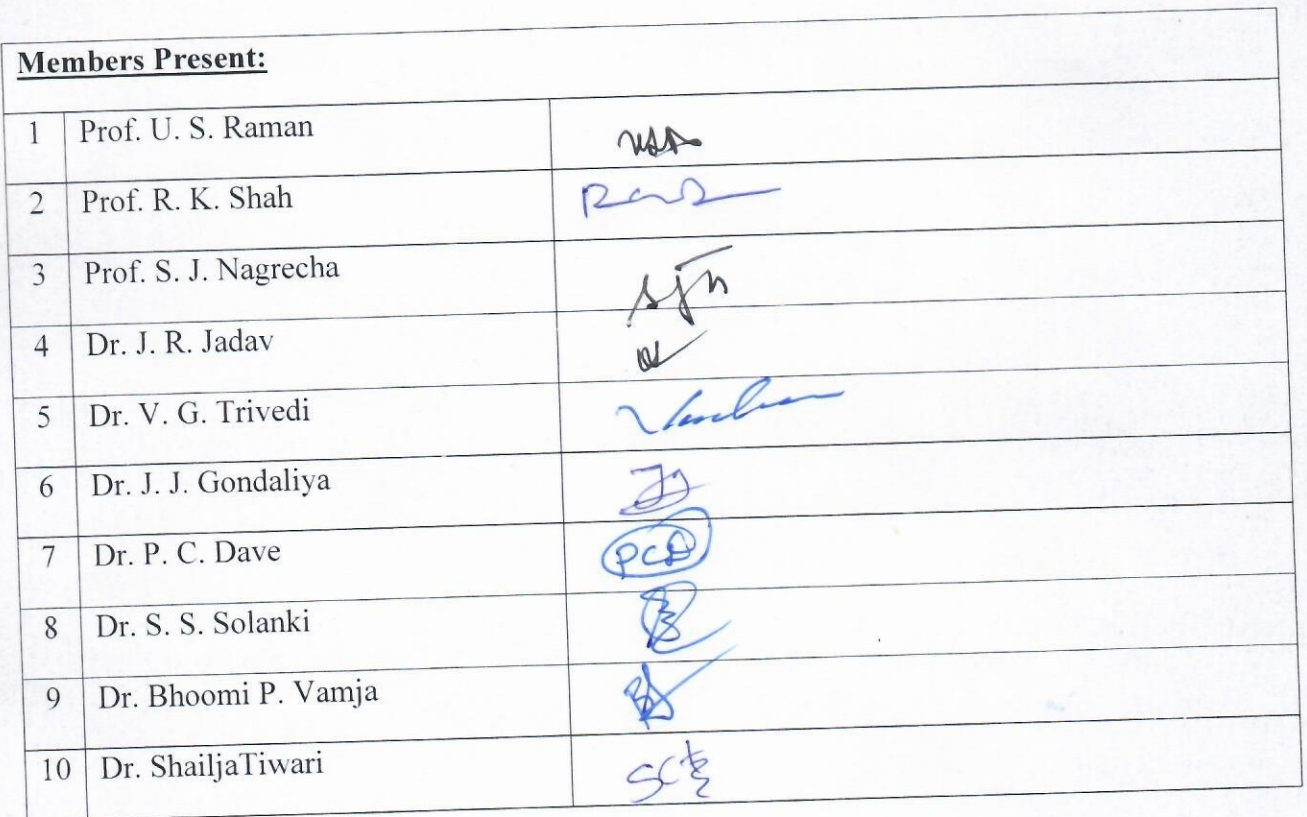 Members Present:
1 Prof. U. S. Raman
2 Prof. R. K. Shah
3 Prof. S. J. Nagrecha Sjn
4 Dr. J. R. Jadav
5 Dr. V. G. Trivedi
6 Dr. J. J. Gondaliya
7 Dr. P. C. Dave PCD
8 Dr. S. S. Solanki
9 Dr. Bhoomi P. Vamja
10 Dr. ShailjaTiwari